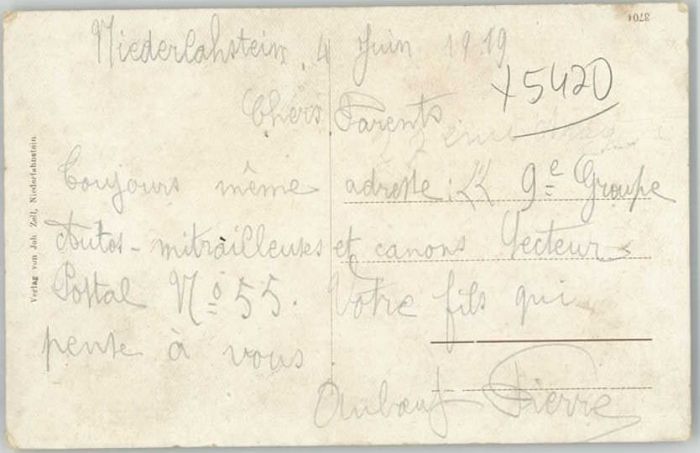 3701
Niederlahstein, 4 Juin 1919
x 5420
Chers Parents
Toujours même adresse : << 9e Groupe
Autos-mitrailleuses et canons Secteur
Postal No 55. Votre fils qui
pense à vous
Auboeuf Pierre
Verlag von Joh. Zell, Niederlahnstein.